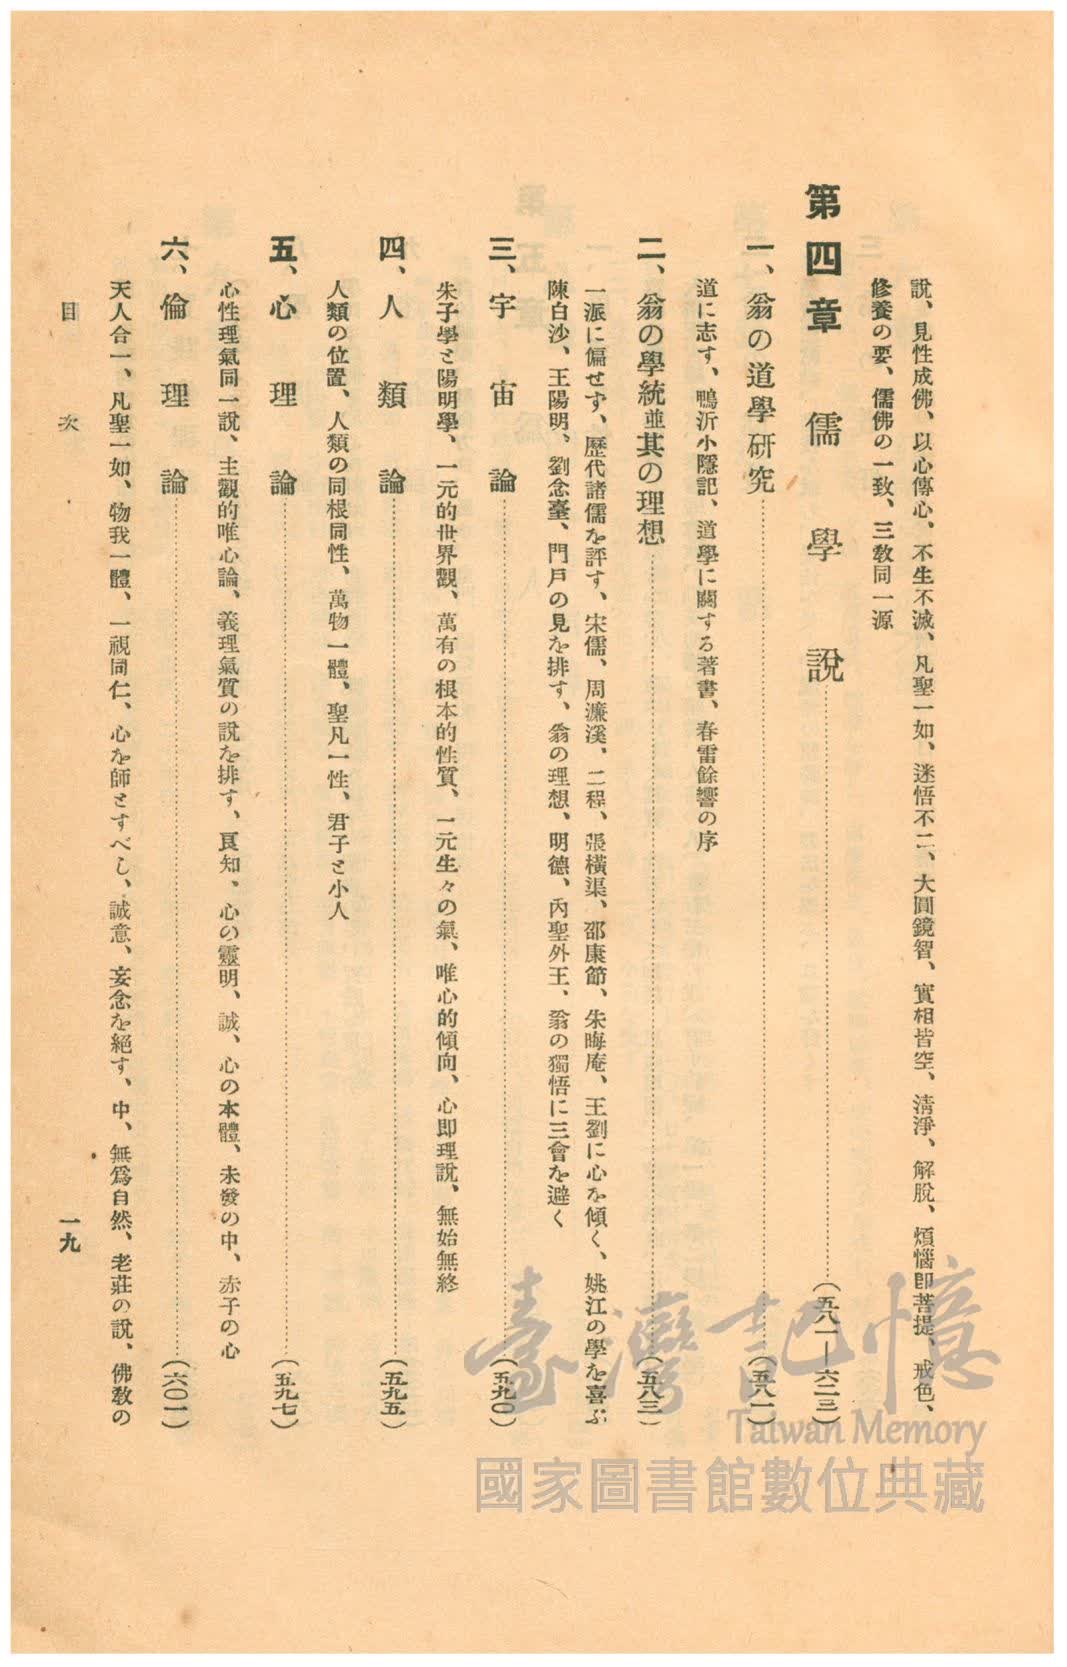 說、見性成佛、以心傳心、不生不滅、凡聖一如、迷悟不二、大圓鏡智、實相皆空、淸淨、解脫、煩惱卽菩提、戒色、
修養の要、儒佛の一致、三敎同一源
第四章　儒學說……(五八一—六二三)
一、翁の道學硏究……(五八一)
道に志す、鴨沂小隱記、道學に關する著書、春雷餘響の序
二、翁の學統並其の理想……(五八三)
一派に偏せず、歷代諸儒を評す、宋儒、周濂溪、二程、張橫渠、邵康節、朱晦庵、王劉に心を傾く、姚江の學を喜ぶ
陳白沙、王陽明、劉念臺、門戶の見を排す、翁の理想、明德、內聖外王、翁の獨悟に三會を避く
三、宇宙論……(五九〇)
朱子學と陽明學、一元的世界觀、萬有の根本的性質、一元生々の氣、唯心的傾向、心卽理說、無始無終
四、人類論……(五九五)
人類の位置、人類の同根同性、萬物一體、聖凡一性、君子と小人
五、心理論……(五九七)
心性理氣同一說、主觀的唯心論、義理氣質の說を排す、良知、心の靈明、誠、心の本體、未發の中、赤子の心
六、倫理論……(六〇一)
天人合一、凡聖一如、物我一體、一視同仁、心を師とすべし、誠意、妄念を絕す、中、無爲自然、老莊の說、佛敎の
目次
一九
臺灣記憶
Taiwan Memory
國家圖書館數位典藏